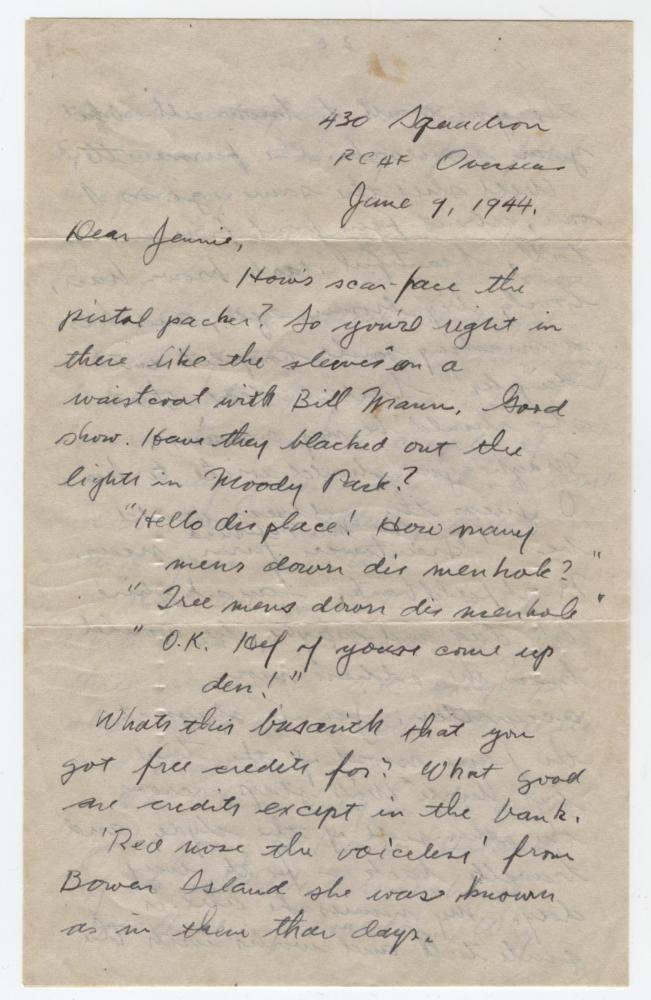 430 Squadron
RCAF Overseas
June 9, 1944.
Dear Jennie,
How's scar-face the
pistol packer? So you're right in
there like the sleeves on a
waistcoat with Bill Mann. Good
show. Have they blacked out the
lights in Moody Park?
"Hello dis place! How many
mens down dis menhole?"
"Tree mens down dis menhole"
"O.K. Hef of youse come up
den!"
Whats this that you
got free credits for? What good
are credits except in the bank.
'Red nose the voiceless' from
Bowen Island she was known
as in them thar days.